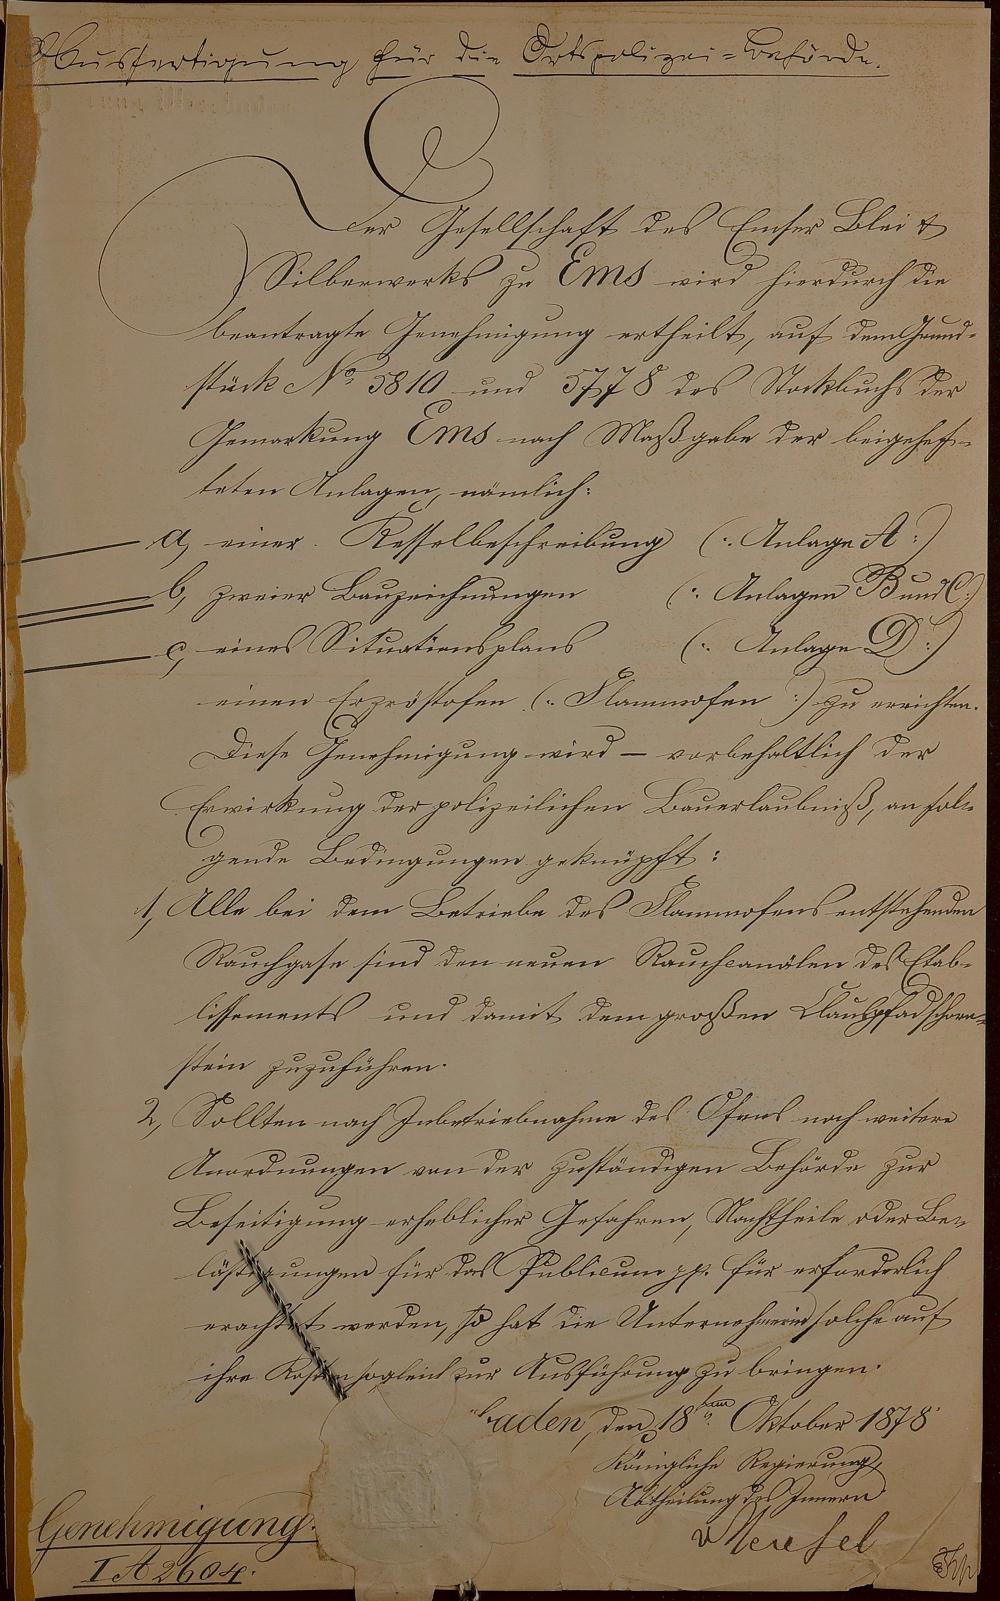 Ausfertigung für die Ortspolizei=Behörde.
Der Gesellschaft des Emser Blei &
Silberwerks zu Ems wird hierdurch die
beantragte Genehmigung ertheilt, auf dem Grund-
stück No. 5810 und 5778 des Stockbuchs der
Gemarkung Ems nach Maßgabe der beigehef-
teten Anlagen, nämlich:
a, einer Kesselbeschreibung (: Anlage A :)
b, zweier Bauzeichnungen (: Anlagen B und C :)
c, eines Situationsplans (: Anlage D :)
einen Erzröstofen (: Flammofen :) zu errichten.
Diese Genehmigung wird – vorbehaltlich der
Erwirkung der polizeilichen Bauerlaubniß, an fol-
gende Bedingungen geknüpft:
1, Alle bei dem Betriebe des Flammofens entstehenden
Rauchgase sind den neuen Rauchcanälen des Etab-
lissements und damit dem großen schorn-
stein zuzuführen.
2, Sollten nach Inbetriebnahme des Ofens noch weitere
Anordnungen von der zuständigen Behörde zur
Beseitigung erheblicher Gefahren, Nachtheile oder Be-
lästigungen für das Publicum pp. für erforderlich
erachtet werden, so hat die Unternehmerin solche auf
ihre Kosten sogleich zur Ausführung zu bringen.
den 18ten Oktober 1878
Königliche Regierung,
Abtheilung des Innern
Genehmigung.
I A 2604.